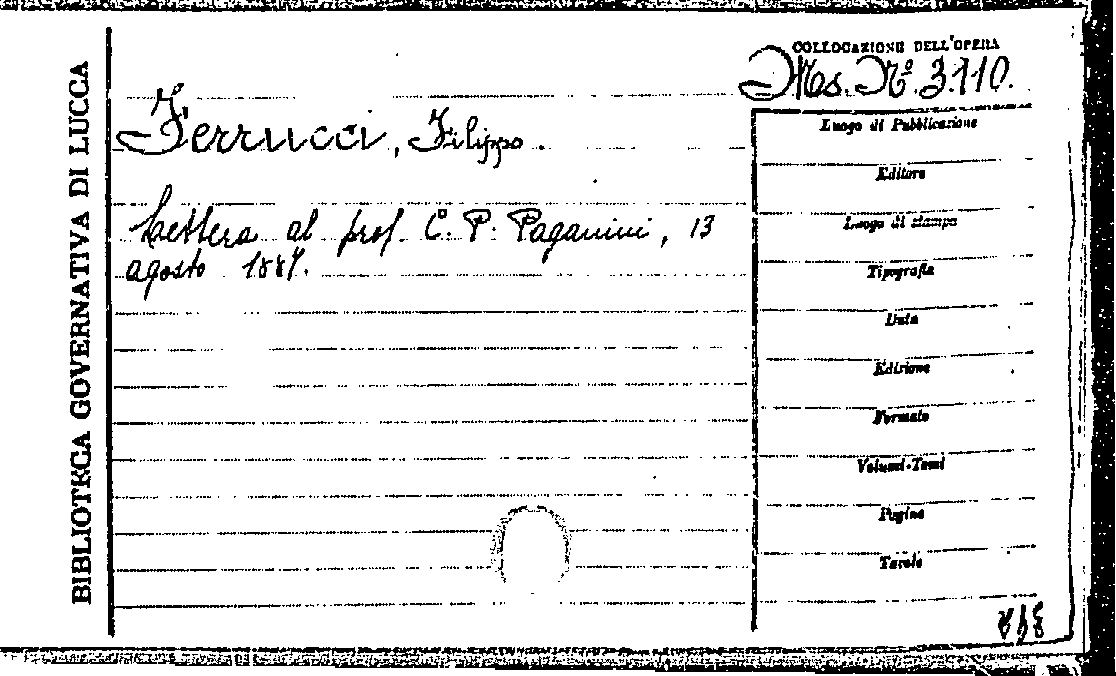 BIBLIOTECA GOVERNATIVA DI LUCCA
COLLOCAZIONE DELL'OPERA
Ms. N.º 3110.
Ferrucci, Filippo.
Lettera al prof. C. P. Paganini, 13
agosto 1887.
Luogo di Pubblicazione
Editore
Luogo di stampa
Tipografia
Data
Edizione
Formato
Volumi-Tomi
Pagine
Tavole